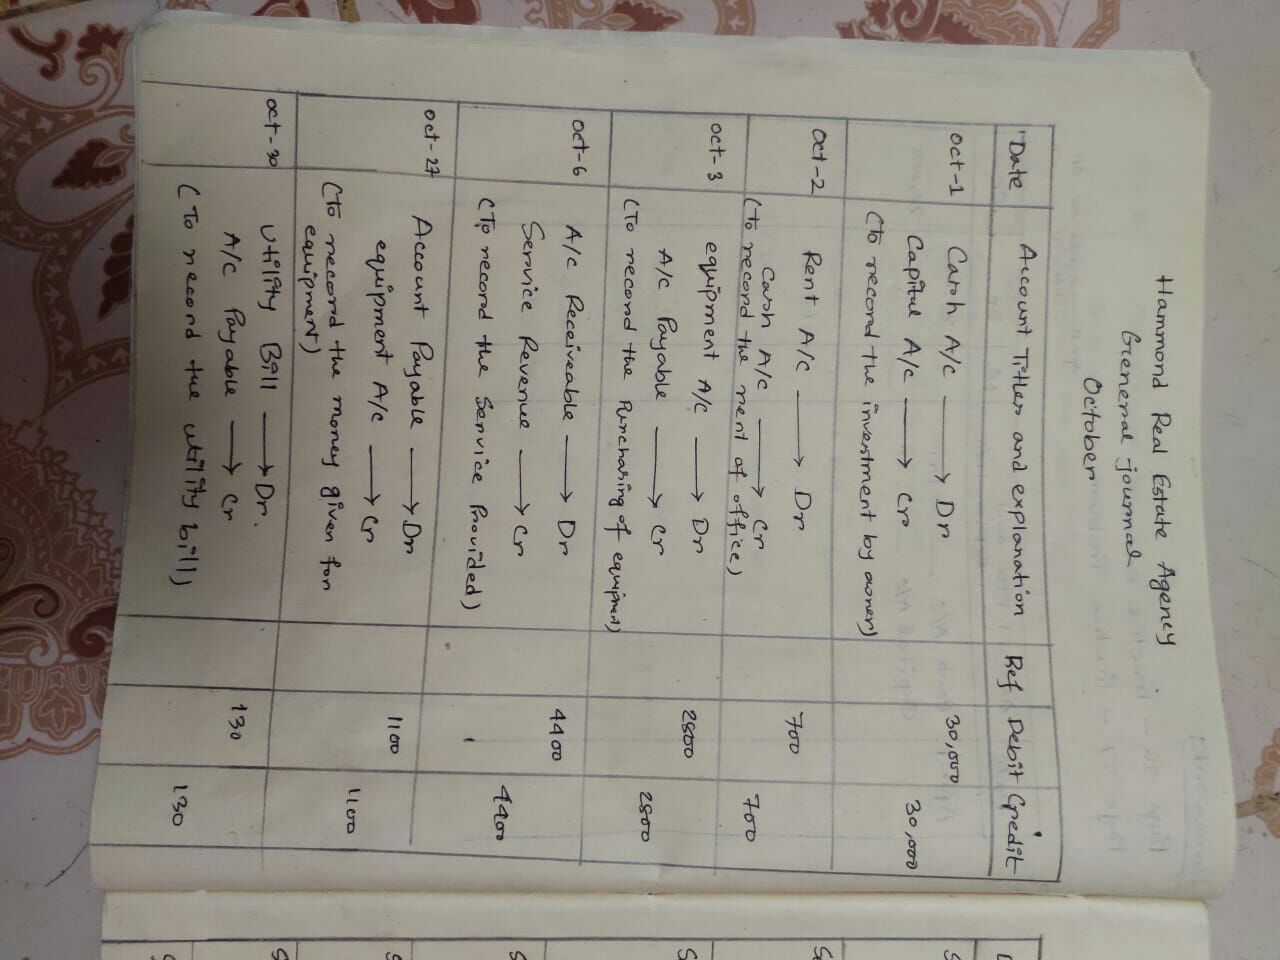 Hammond Real Estate Agency
General journal
October
Date Account Titles and explanation Ref Debit Credit
Oct-1 Cash A/C → Dr 30,000
Capital A/C → Cr 30,000
(To record the investment by owner)
Oct-2 Rent A/C → Dr 700
Cash A/C → Cr 700
(To record the rent of office)
Oct-3 equipment A/C → Dr 2800
A/C Payable → Cr 2800
(To record the Purchasing of equipment)
Oct-6 A/C Receiveable → Dr 4400
Service Revenue → Cr 4400
(To record the Service Provided)
Oct-27 Account Payable → Dr 1100
equipment A/C → Cr 1100
(To record the money given for
equipment)
Oct-30 Utility Bill → Dr. 130
A/C Payable → Cr 130
(To record the utility bill)